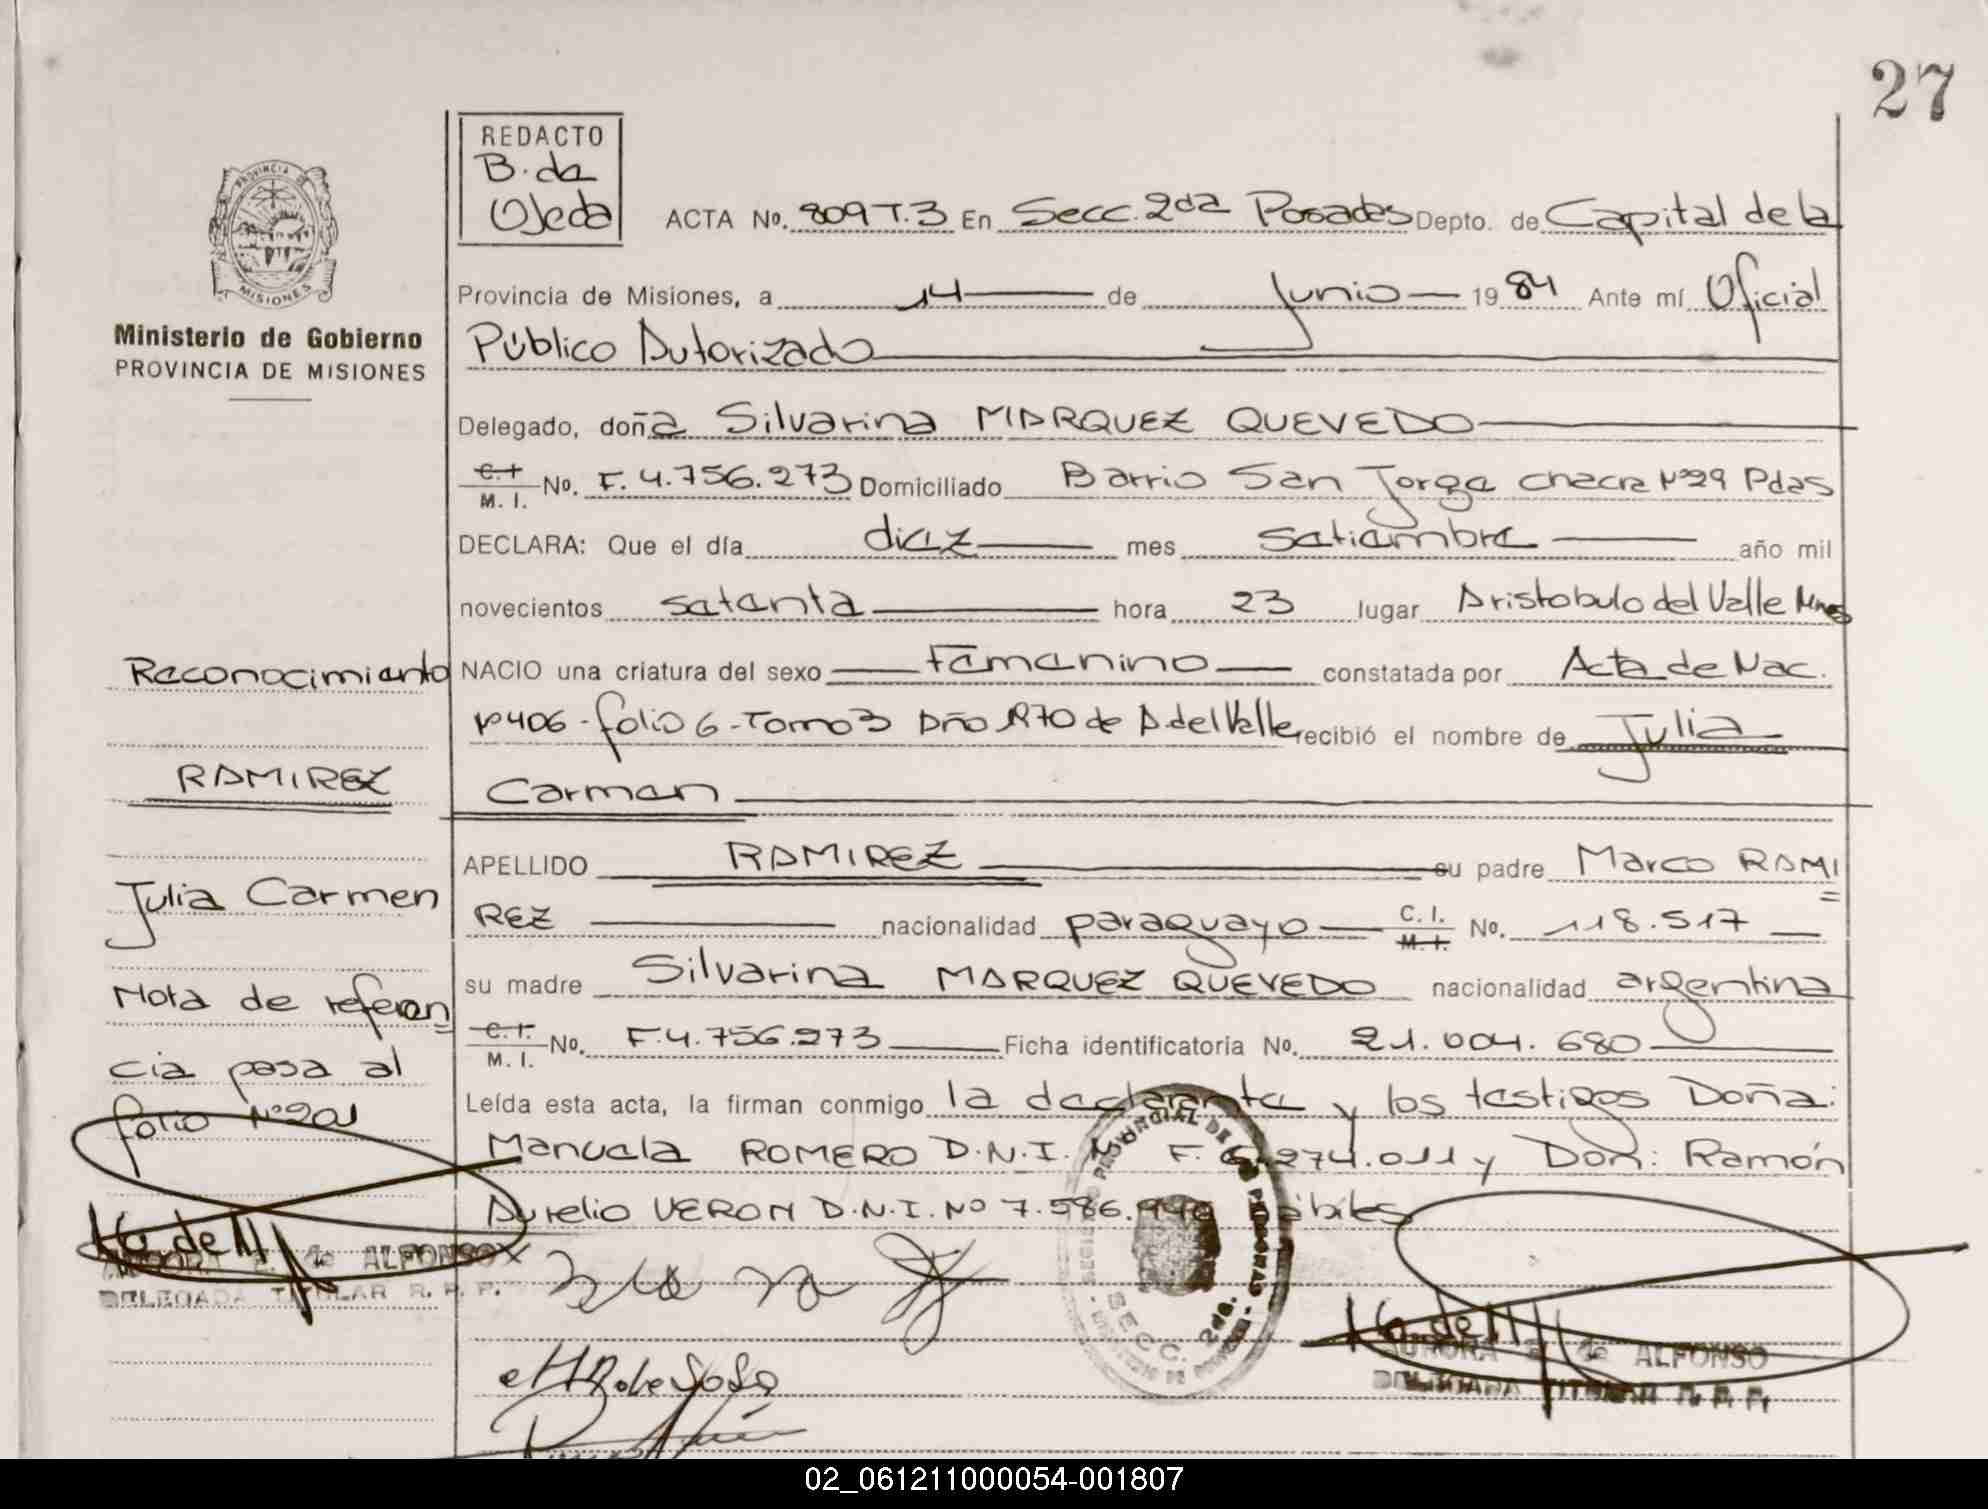 27
REDACTO
B. de
Ojeda
ACTA No. 809 T.3 En Secc. 2da Posadas Depto. de Capital de la
PROVINCIA DE
MISIONES
Provincia de Misiones, a 14 de Junio 1984 Ante mí Oficial
Ministerio de Gobierno
PROVINCIA DE MISIONES
Público Autorizado
Delegado, doña Silvarina MARQUEZ QUEVEDO
C.I. M. I. No. F. 4.756.273 Domiciliado Barrio San Jorge chacra Nº 29 Pdas
DECLARA: Que el día diez mes setiembre año mil
novecientos setenta hora 23 lugar Aristobulo del Valle Mnes
Reconocimiento
NACIO una criatura del sexo Femenino constatada por Acta de Nac.
Nº 406 - folio 6 - Tomo 3 Año 1970 de A. del Valle recibió el nombre de Julia
RAMIREZ
Carmen
APELLIDO RAMIREZ su padre Marco RAMI
Julia Carmen
REZ nacionalidad paraguayo C. I. M. I. No. 118.517
su madre Silvarina MARQUEZ QUEVEDO nacionalidad argentina
Nota de referen
C. I. M. I. No. F. 4.756.273 Ficha identificatoria No. 21.004.680
cia pasa al
Leída esta acta, la firman conmigo la declarante y los testigos Doña:
folio Nº 201
Manuela ROMERO D.N.I. Nº F. 6.274.011 y Don: Ramón
Aurelio VERON D.N.I. Nº 7.586.940 hábiles
AURORA de ALFONSO
DELEGADA TITULAR R. P. P.
SECC. 2da.
AURORA de ALFONSO
DELEGADA TITULAR R. P. P.
02_061211000054-001807